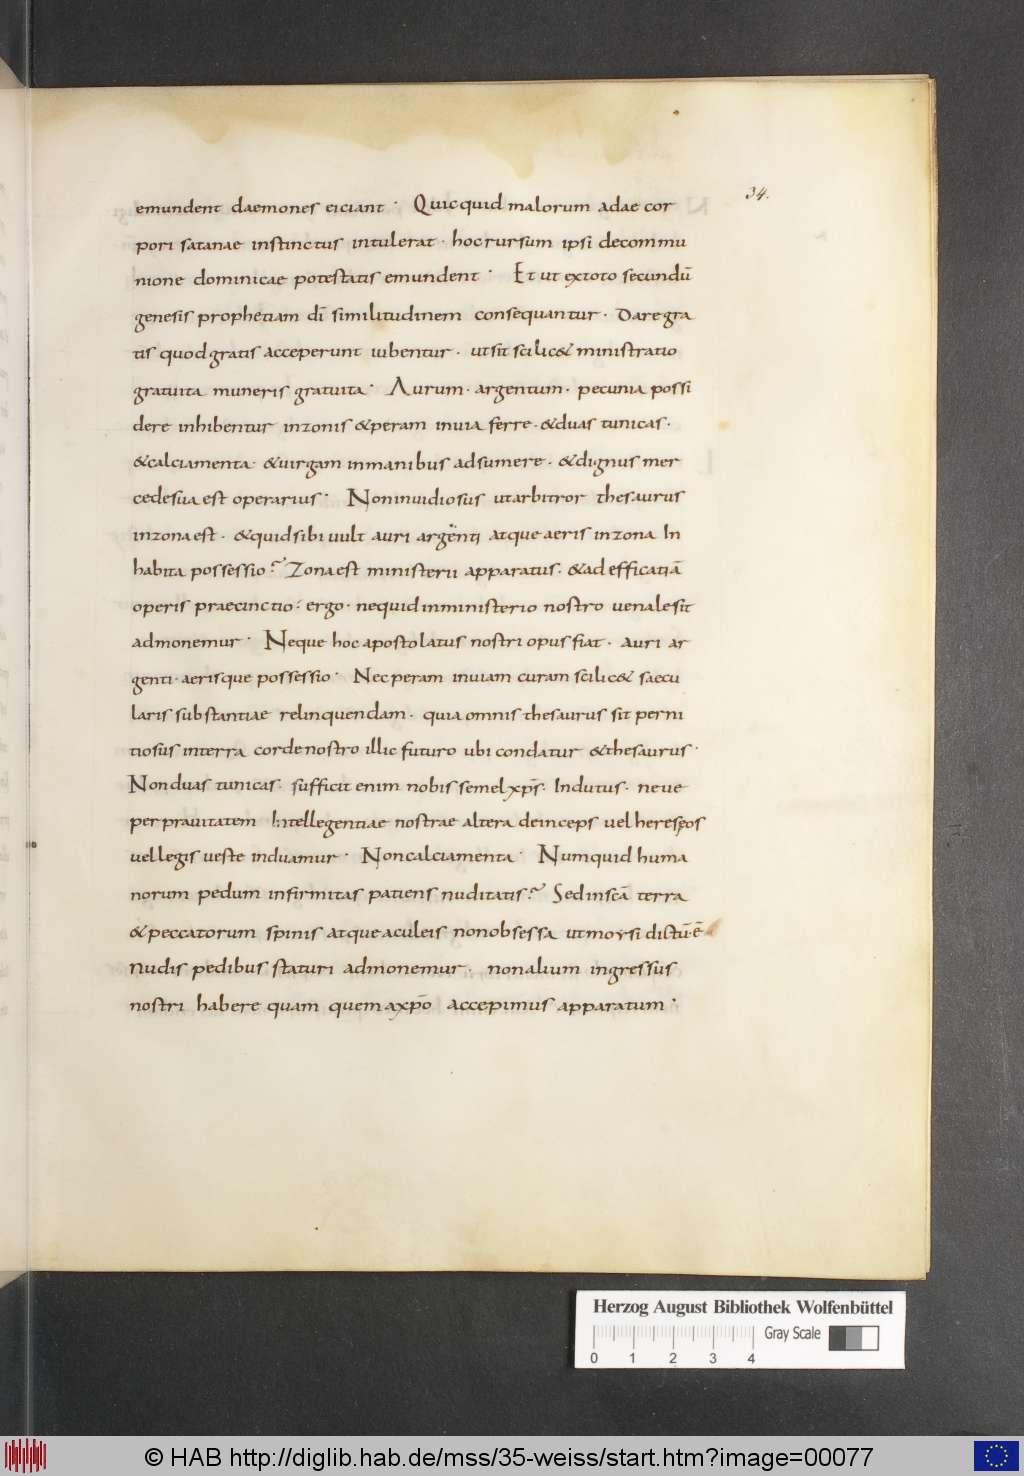 34.
emundent daemones eiciant · Quicquid malorum adae cor
pori satanae instinctus intulerat · hoc rursum ipsi decommu
nione dominicae potestatis emundent · Et ut extoto secundū
genesis prophetiam dī similitudinem consequantur · Dare gra
tis quod gratis acceperunt iubentur · ut sit scilic& ministratio
gratuita muneris gratuita · Aurum · argentum · pecunia possi
dere inhibentur inzonis &peram inuia ferre · &duas tunicas ·
&calciamenta · &uirgam inmanibus adsumere · &dignus mer
cedesua est operarius · Noninuidiosus utarbitror thesaurus
inzona est · &quid sibi uult auri argenti atque aeris inzona In
habita possessio? Zona est ministerii apparatus · &ad efficatiā
operis praecinctio: ergo · nequid inministerio nostro uenale sit
admonemur · Neque hoc apostolatus nostri opus fiat · auri ar
genti · aerisque possessio · Nec peram inuiam curam scilic& saecu
laris substantiae relinquendam · quia omnis thesaurus sit perni
tiosus interra corde nostro illic futuro ubi condatur &thesaurus ·
Non duas tunicas · sufficit enim nobis semel xp̄s · Indutus · neue
per prauitatem Intellegentiae nostrae altera deinceps uel hereseos
uel legis ueste induamur · Non calciamenta · Numquid huma
norum pedum infirmitas patiens nuditatis? Sed inscā terra
&peccatorum spinis atque aculeis nonobsessa ut moysi dictū · ē
nudis pedibus staturi admonemur · non alium ingressus
nostri habere quam quem axpō accepimus apparatum ·
Herzog August Bibliothek Wolfenbüttel
Gray Scale
0 1 2 3 4
© HAB http://diglib.hab.de/mss/35-weiss/start.htm?image=00077